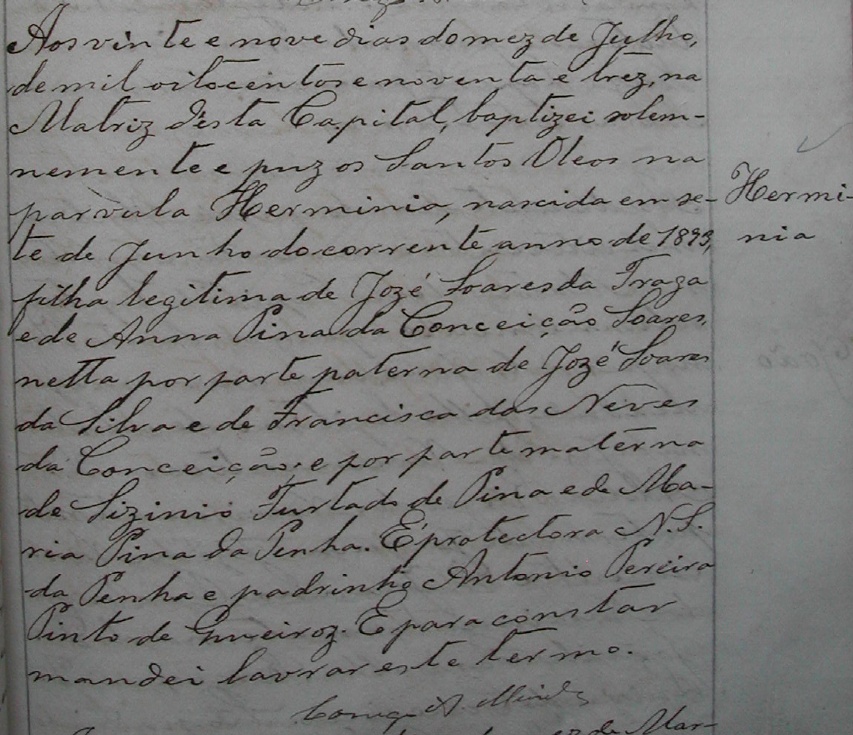 Aos vinte e nove dias do mez de Julho,
de mil oitocentos e noventa e trez, na
Matriz désta Capital, baptizei solem-
nemente e puz os Santos Oleos na
parvula Herminia, nascida em se-
te de Junho do corrente anno de 1893,
Hermi-
nia
filha legitima de Jozé Soares da Fraga
e de Anna Pina da Conceição Soares,
netta por parte paterna de Jozé Soares
da Silva e de Francisca das Neves
da Conceição; e por parte materna
de Sizinio Furtado de Pina e de Ma-
ria Pina da Penha. É protectora N. S.
da Penha e padrinho Antonio Pereira
Pinto de Queiroz. E para constar
mandei lavrar este termo.
de Mar-